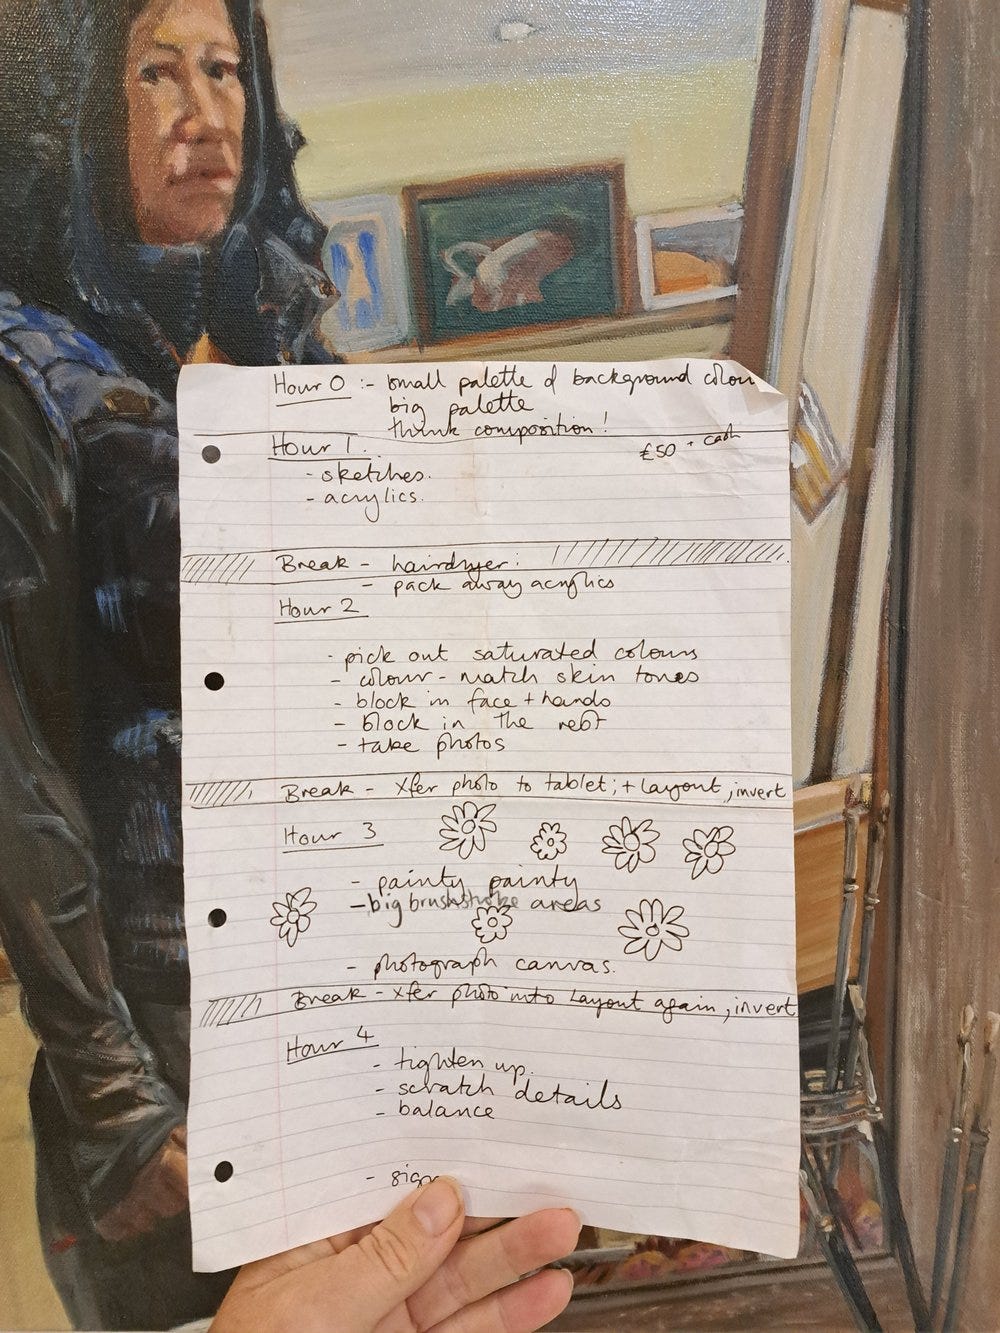 Hour 0 :- small palette of background colour
big palette
think composition!
Hour 1.
£50 + cash
- sketches.
- acrylics.
Break - hairdryer.
- pack away acrylics
Hour 2
- pick out saturated colours
- colour-match skin tones
- block in face + hands
- block in the rest
- take photos
Break - Xfer photo to tablet; + layout, invert
Hour 3
- painty painty
- big brushstroke areas
- photograph canvas.
Break - Xfer photo into layout again, invert
Hour 4
- tighten up.
- scratch details
- balance
- sign